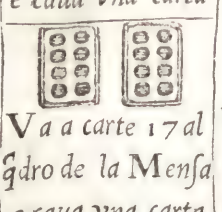 e caua vna carta
Va a carte 17 al
q̃dro de la Menſa
e caua vna carta